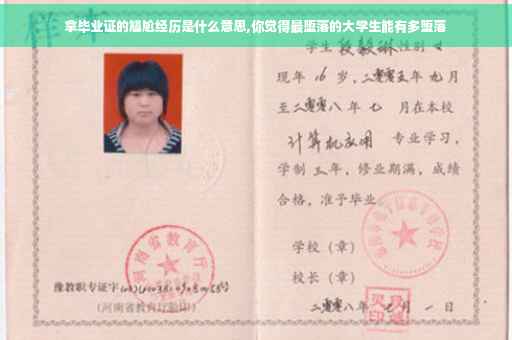 拿毕业证的尴尬经历是什么意思,你觉得最堕落的大学生能有多堕落
样本
学生 段毅琳 性别 女
现年 16 岁，二零零五年 九 月
至二零零八年 七 月在本校
计算机应用 专业学习，
学制 三 年，修业期满，成绩
合格，准予毕业
学校（章）
校长（章）
河南省教育厅
豫教职专证字
（河南省教育厅验印）
二零零八年 月 一 日